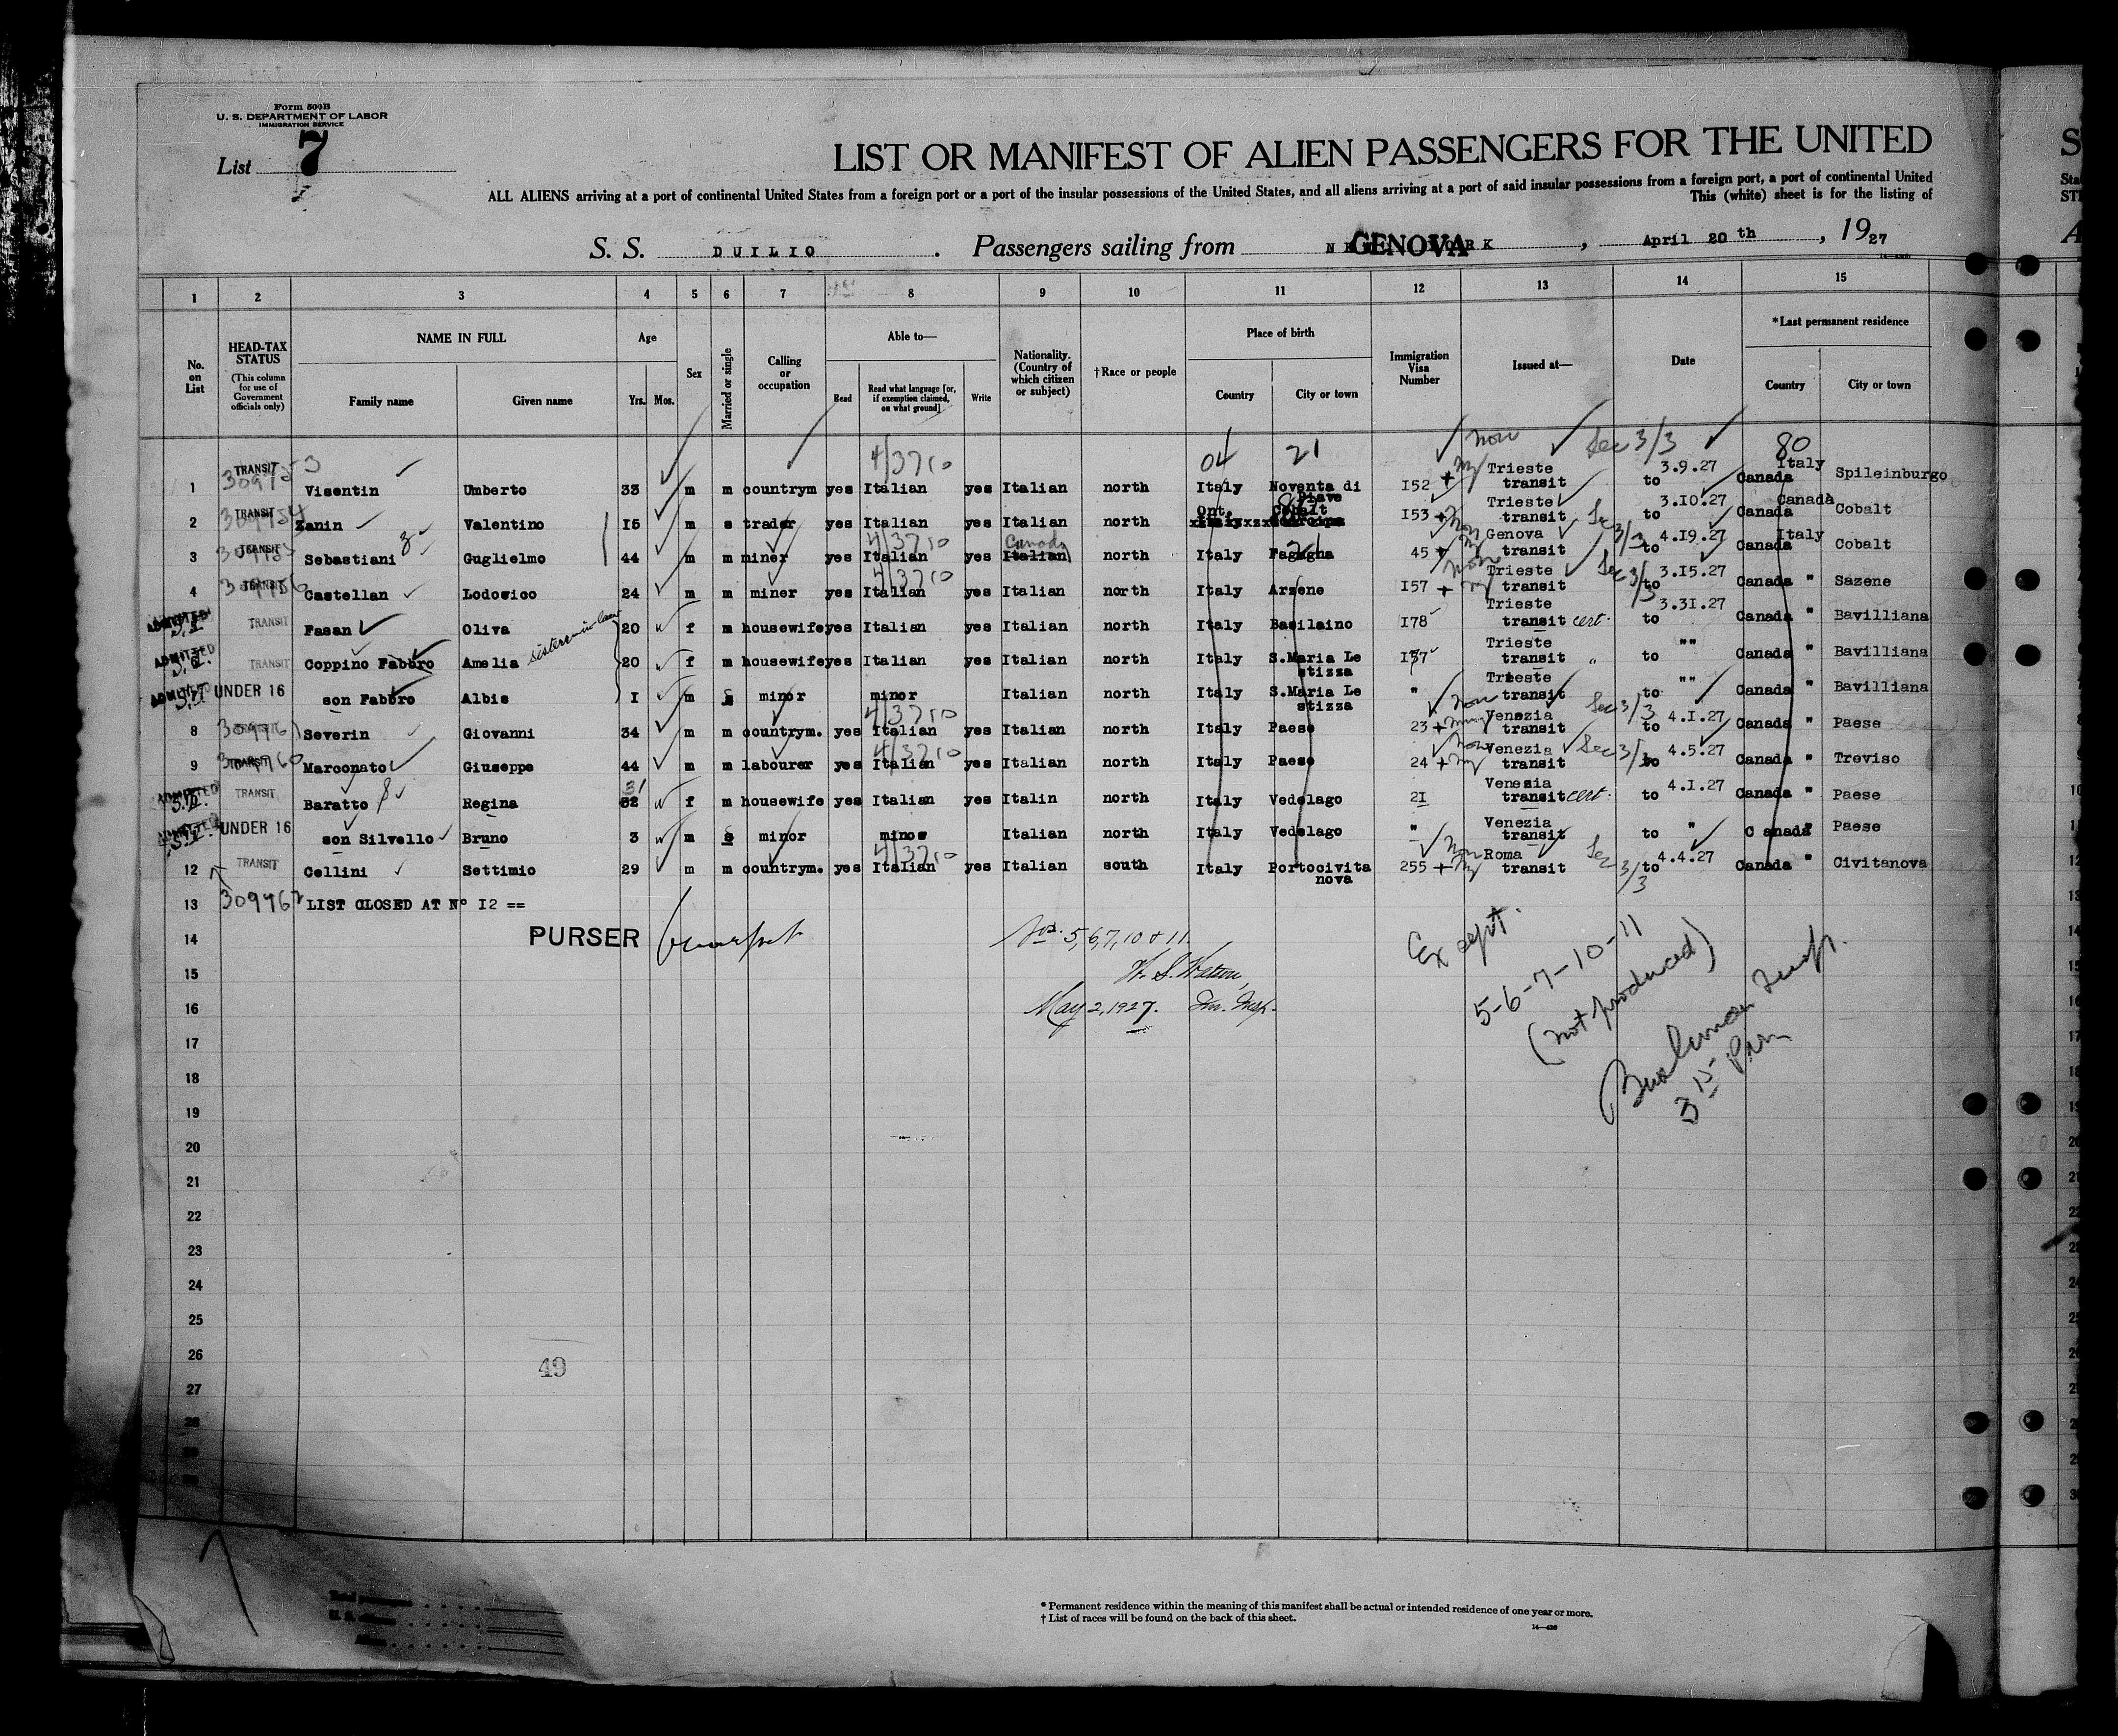 Form 500B
U. S. DEPARTMENT OF LABOR
IMMIGRATION SERVICE
List 7
LIST OR MANIFEST OF ALIEN PASSENGERS FOR THE UNITED
ALL ALIENS arriving at a port of continental United States from a foreign port or a port of the insular possessions of the United States, and all aliens arriving at a port of said insular possessions from a foreign port, a port of continental United
This (white) sheet is for the listing of
S. S. DUILIO. Passengers sailing from GENOVA, April 20 th, 1927
1 2 3 4 5 6 7 8 9 10 11 12 13 14 15
No. on List
HEAD-TAX STATUS (This column for use of Government officials only)
NAME IN FULL Family name Given name
Age Yrs. Mos.
Sex
Married or single
Calling or occupation
Able to— Read Read what language [or, if exemption claimed, on what ground] Write
Nationality. (Country of which citizen or subject)
† Race or people
Place of birth Country City or town
Immigration Visa Number
Issued at—
Date
*Last permanent residence Country City or town
4/3710 04 21 non Sec 3/3 80
1 TRANSIT Visentin Umberto 33 m m countrym yes Italian yes Italian north Italy Noventa di Piave 152 Trieste transit to 3.9.27 Canada Italy Spileinburgo
2 TRANSIT Zanin Valentino 15 m s trader yes Italian yes Italian north Ont. Cobalt 153 Trieste transit to 3.10.27 Canada Canada Cobalt
3 TRANSIT Sebastiani Guglielmo 44 m m miner yes Italian yes Italian Canada north Italy Fagagna 45 Genova transit to 4.19.27 Canada Italy Cobalt
4 TRANSIT Castellan Lodovico 24 m m miner yes Italian yes Italian north Italy Arzene 157 Trieste transit to 3.15.27 Canada " Sazene
ADMITTED TRANSIT Fasan Oliva 20 f m housewife yes Italian yes Italian north Italy Basilaino 178 Trieste transit cert. to 3.31.27 Canada " Bavilliana
ADMITTED TRANSIT Coppino Fabbro Amelia sister-in-law 20 f m housewife yes Italian yes Italian north Italy S.Maria Le stizza Trieste transit " to "" Canada " Bavilliana
ADMITTED UNDER 16 son Fabbro Albis 1 m s minor minor Italian north Italy S.Maria Le stizza " Trieste transit to "" Canada " Bavilliana
8 Severin Giovanni 34 m m countrym. yes Italian yes Italian north Italy Paese 23 Venezia transit to 4.1.27 Canada " Paese
9 TRANSIT Marconato Giuseppe 44 m m labourer yes Italian yes Italian north Italy Paese 24 Venezia transit to 4.5.27 Canada " Treviso
ADMITTED TRANSIT Baratto Regina 31 f m housewife yes Italian yes Italin north Italy Vedelago 21 Venezia transit cert. to 4.1.27 Canada " Paese
ADMITTED UNDER 16 son Silvello Bruno 3 m s minor minor Italian north Italy Vedelago " Venezia transit to " Canada " Paese
12 TRANSIT Cellini Settimio 29 m m countrym. yes Italian yes Italian south Italy Portocivita nova 255 Roma transit to 4.4.27 Canada " Civitanova
13 LIST CLOSED AT N° 12 ==
14 PURSER Nos. 5,6,7,10 & 11. Except
15 5-6-7-10-11
16 May 2, 1927. Im. Insp. (not produced)
Insp.
3 15 P.M.
17
18
19
20
21
22
23
24
25
26
49
27
28
29
30
Total passengers
U. S. citizens
Aliens
* Permanent residence within the meaning of this manifest shall be actual or intended residence of one year or more.
† List of races will be found on the back of this sheet.